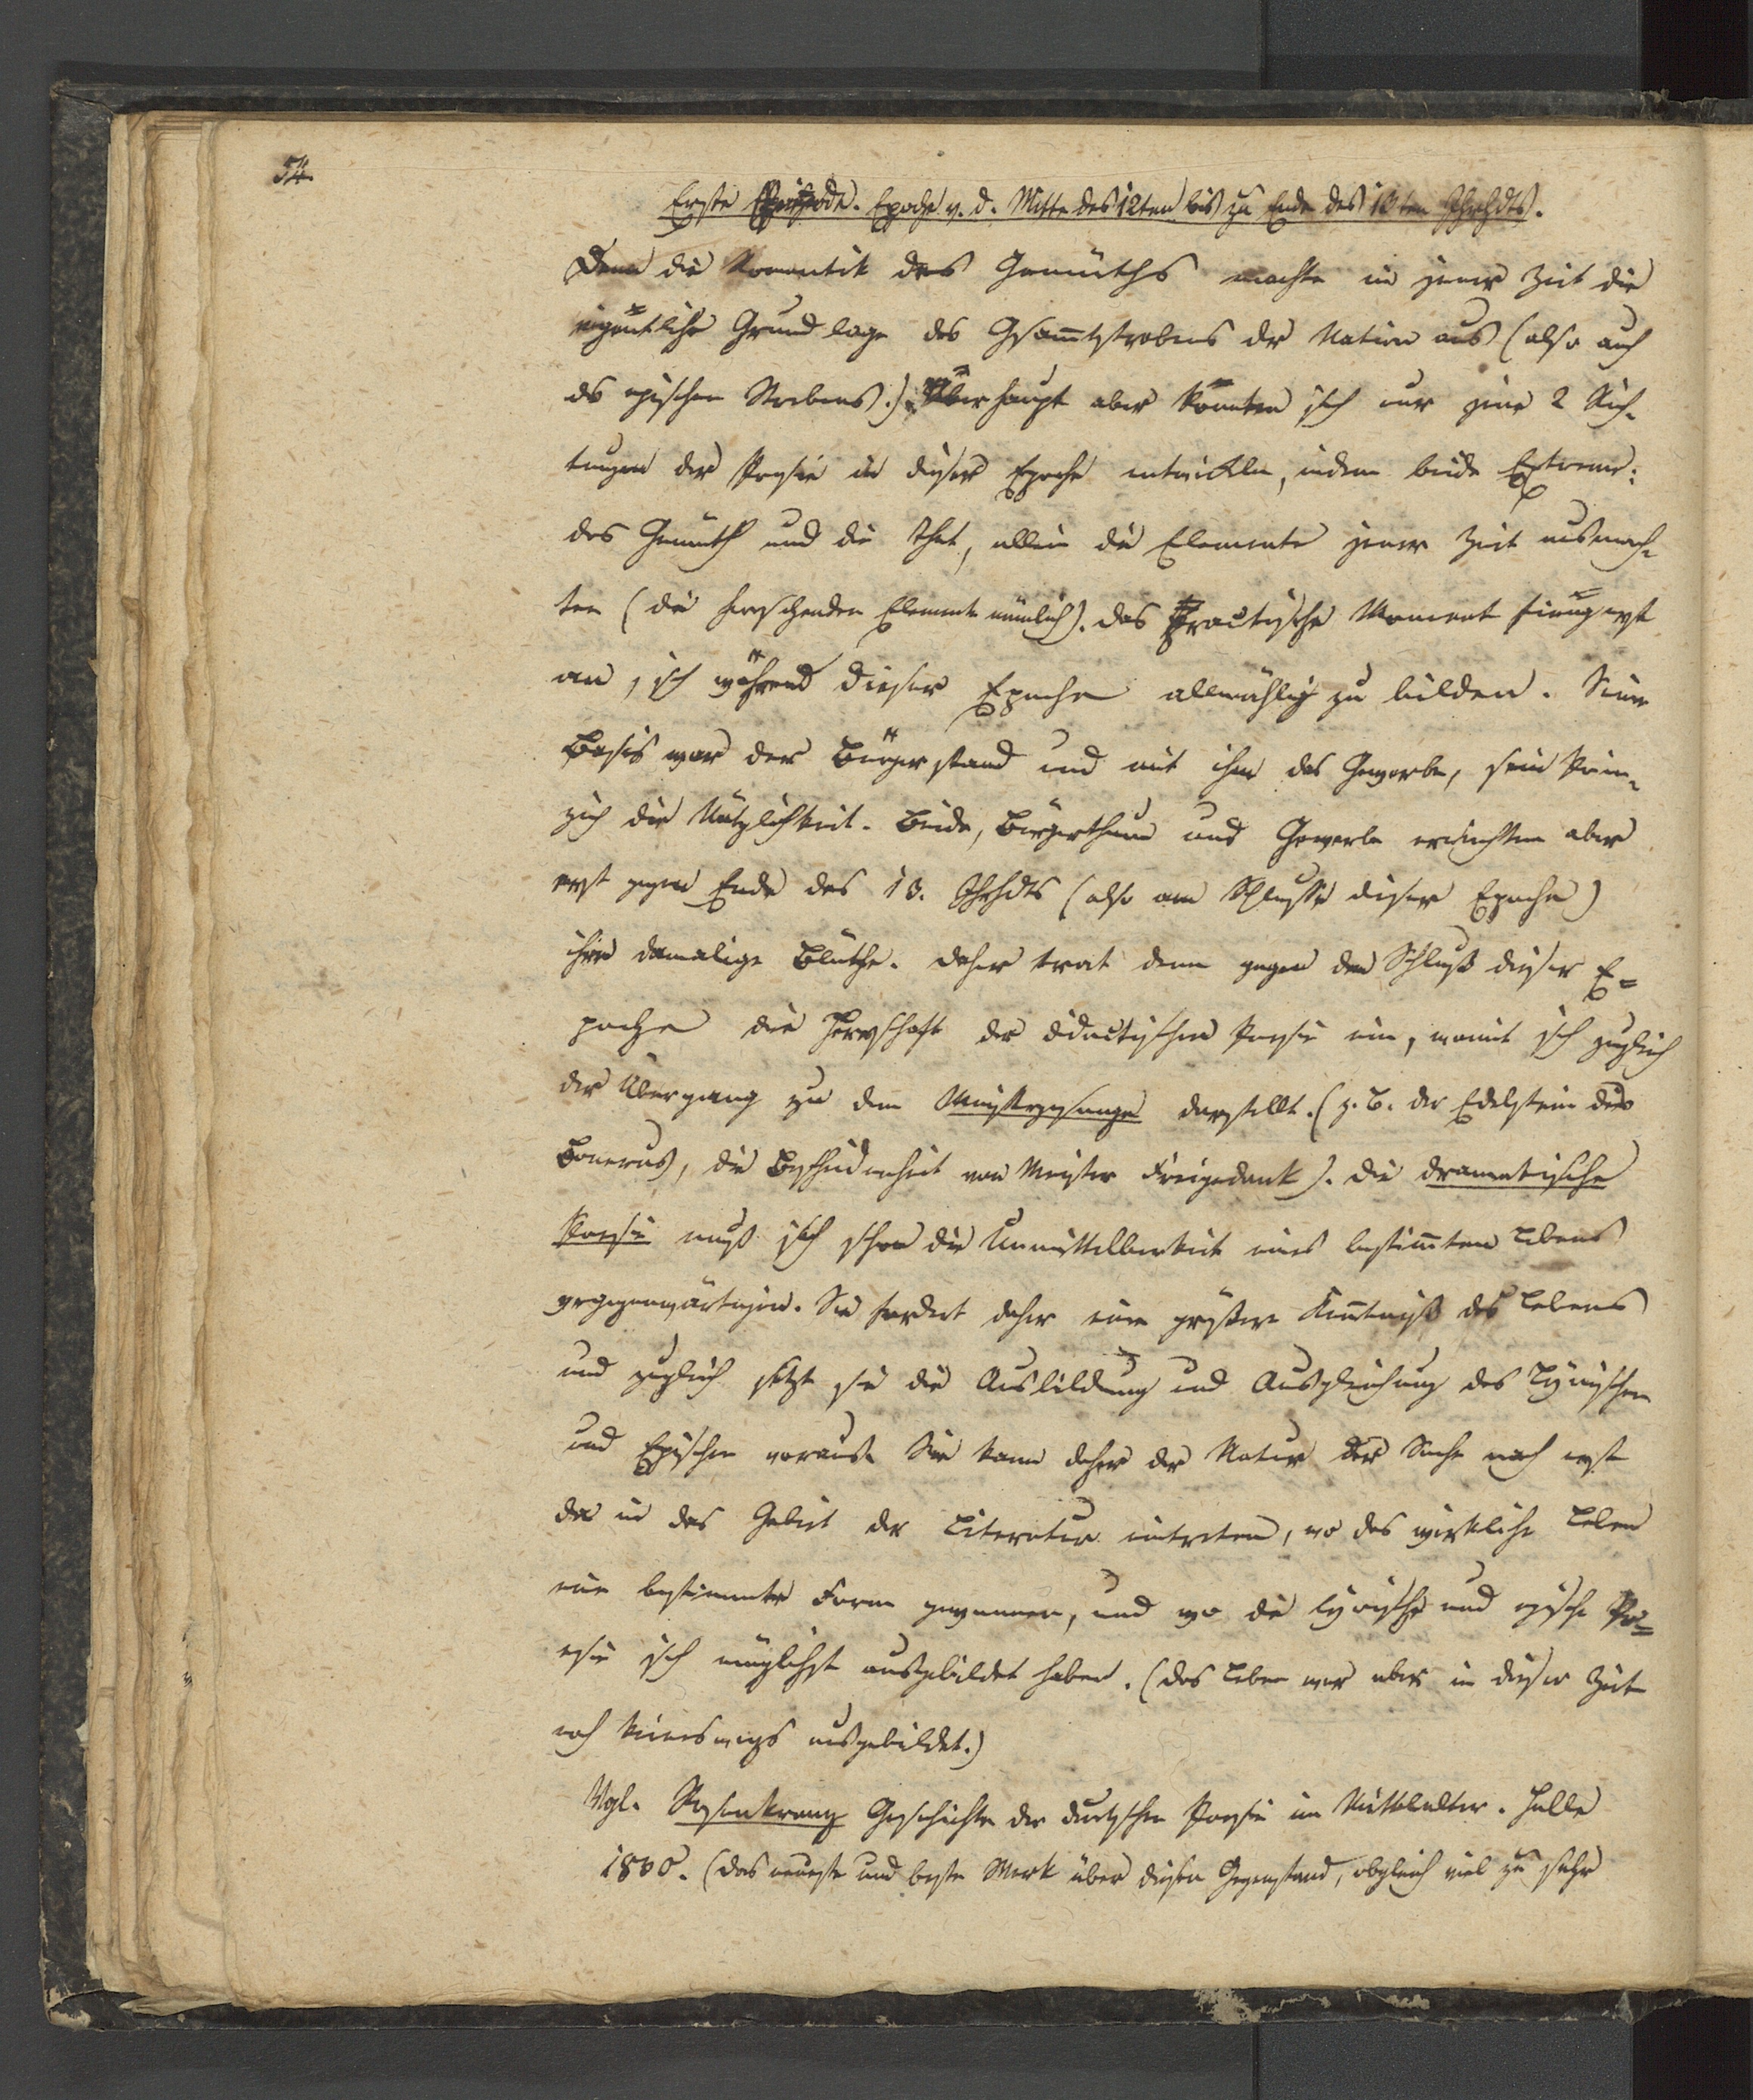 54.
Erste Periode. Epoche v. d. Mitte des 12ten bis zu Ende des 13ten Jhrhdts.
Denn die Romantik des Gemüths machte in jener Zeit die
eigentliche Grundlage des Gesam̅tstrebens der Nation aus (also auch
des epischen Strebens.) Überhaupt aber konnten sich nur jene 2 Rich-
tungen der Poesie in dieser Epoche entwickeln, indem beide Extreme:
das Gemüth und die That, allein die Elemente jener Zeit ausmach-
ten (die herrschenden Elemente nämlich). das practische Moment fieng erst
an, sich während dieser Epoche allmählig zu bilden. Seine
Basis war der Bürgerstand und mit ihm das Gewerbe, sein Prin-
zip die Nützlichkeit. Beide, Bürgerthum und Gewerbe erreichten aber
erst gegen Ende des 13. Jhrhdts (also am Schlusse dieser Epoche)
ihre damalige Blüthe. daher trat denn gegen den Schluß dieser E-
poche die Herrschaft der didactischen Poesie ein, womit sich zugleich
der Übergang zu dem Meistergesange darstellt. (z. B. der Edelstein des
Bonerus, die Bescheidenheit von Meister Freigedank). die dramatische
Poesie muß sich schon die Unmittelbarkeit eines bestim̅ten Lebens
vergegenwärtigen. Sie fordert daher eine größere Ken̅tniß des Lebens
und zugleich setzt sie die Ausbildung und Ausgleichung des Lyrischen
und Epischen voraus. Sie kann daher der Natur der Sache nach erst
da in das Gebiet der Literatur eintreten, wo das wirkliche Leben
eine bestimmte Form gewonnen, und wo die lyrische und epische Po-
esie sich möglichst ausgebildet haben. (das Leben war aber in dieser Zeit
noch keineswegs ausgebildet.)
Vgl. Rosenkranz Geschichte der deutschen Poesie im Mittelalter. Halle
1830. (das neueste und beste Werk über diesen Gegenstand, obgleich viel zu sehr